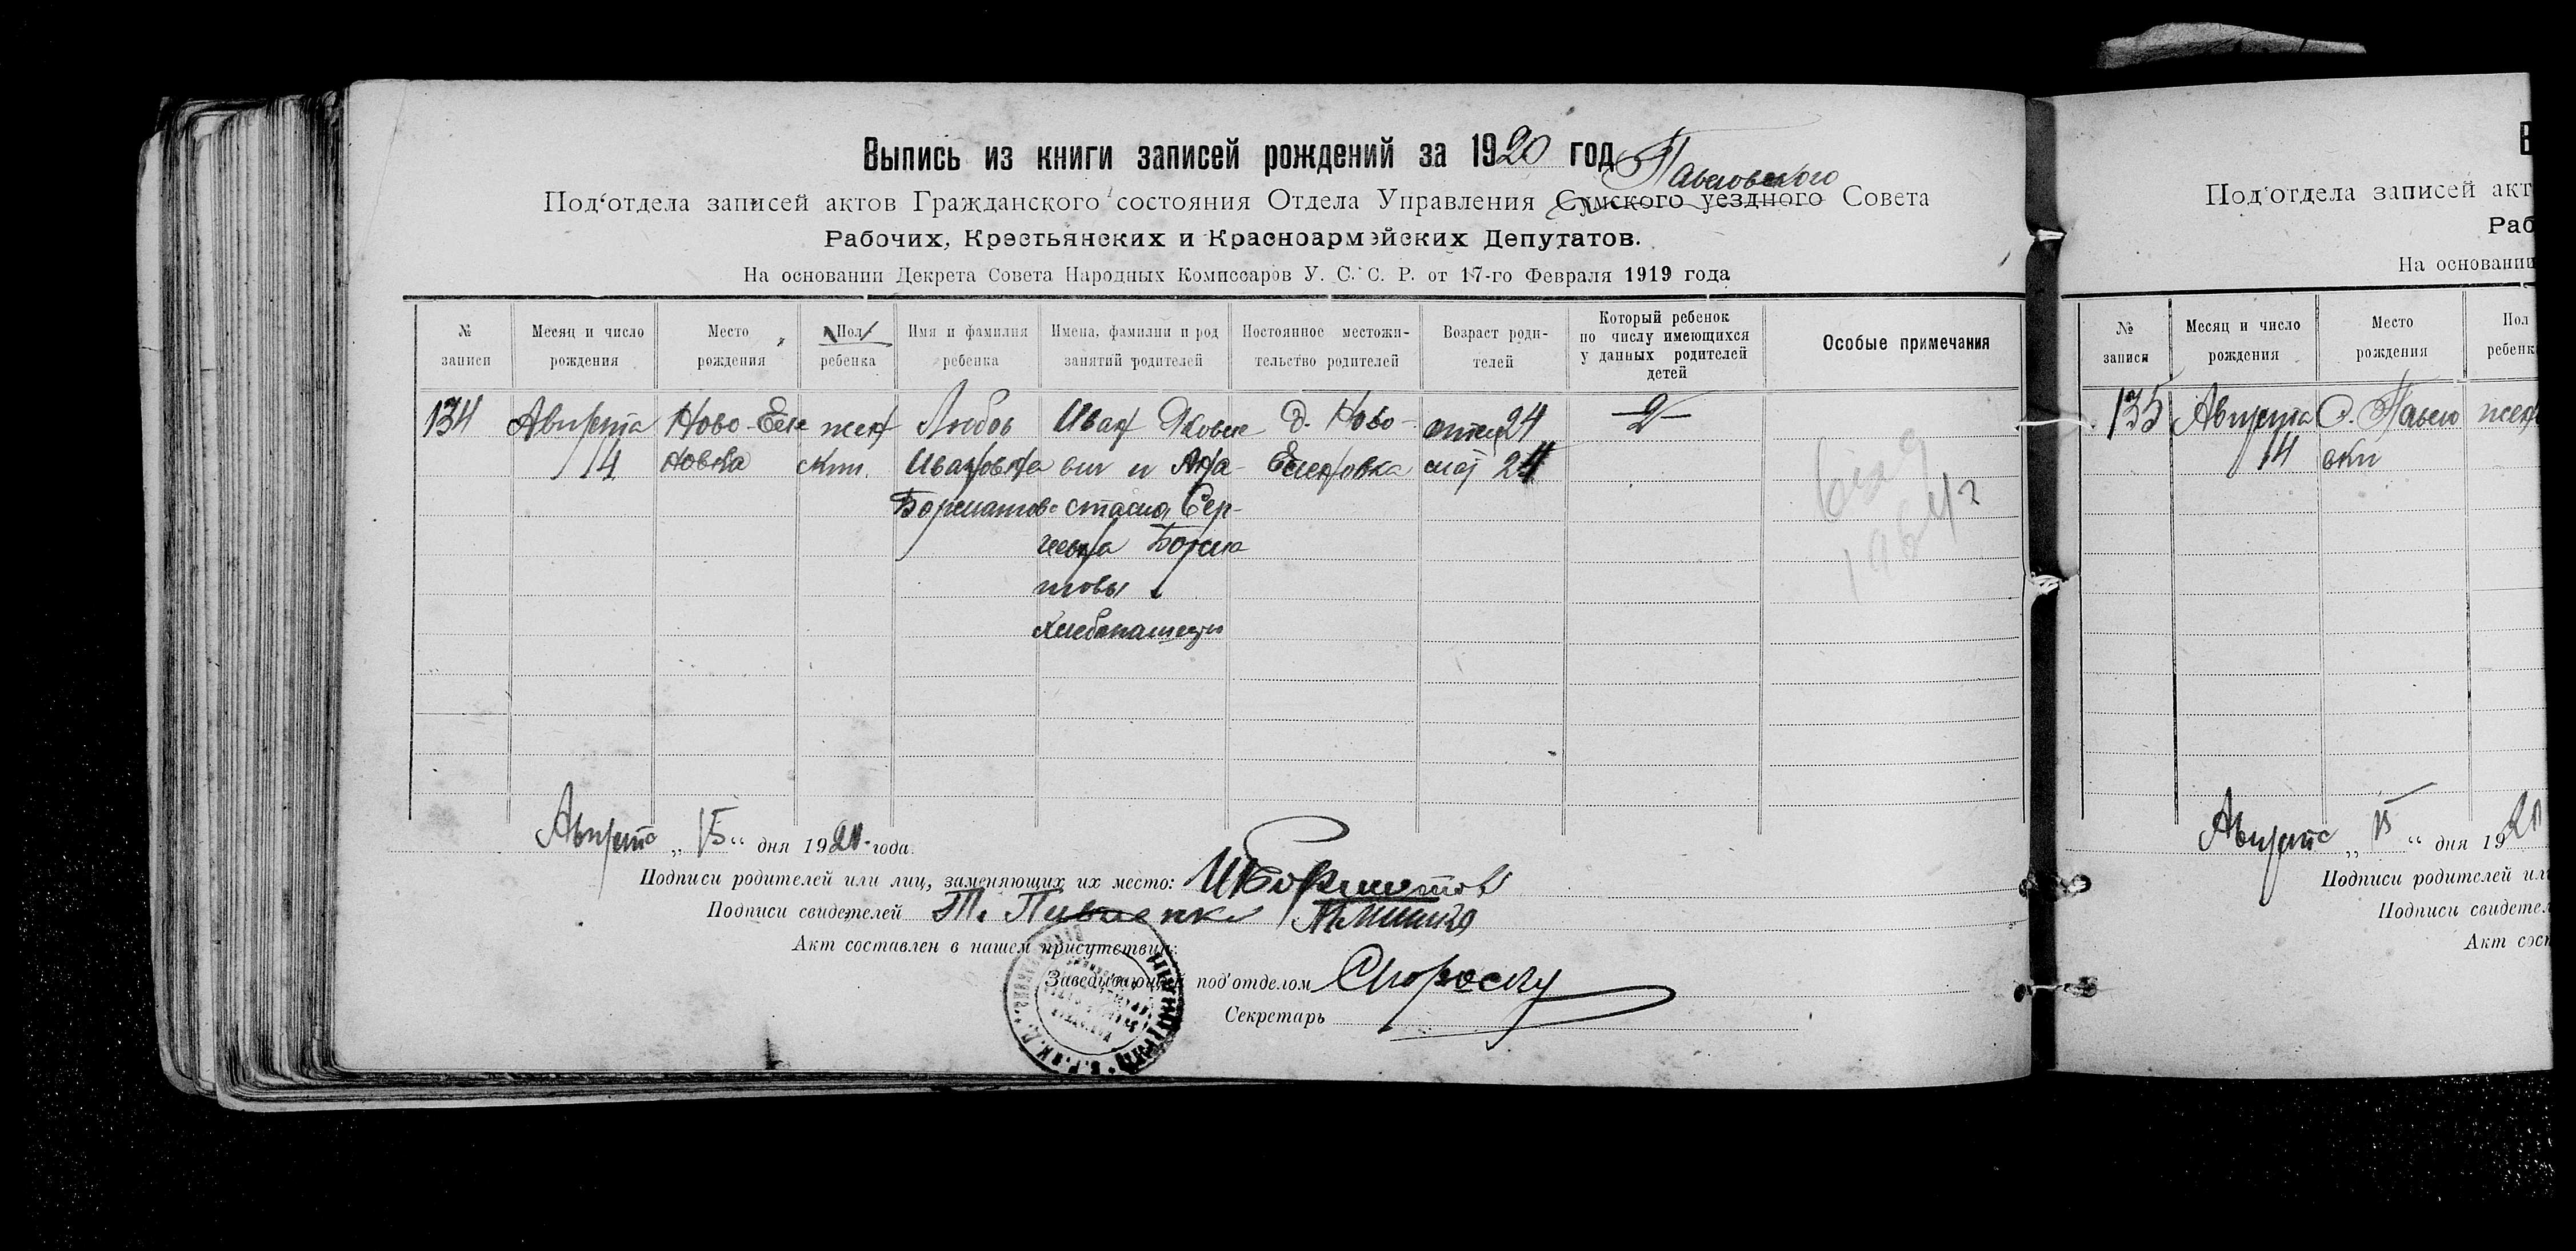 Выпись из книги записей рождений за 1920 год
Павловского
Под'отдела записей актов Гражданского состояния Отдела Управления Сумского уездного Совета
Рабочих, Крестьянских и Красноармейских Депутатов.
На основании Декрета Совета Народных Комиссаров У. С. С. Р. от 17-го Февраля 1919 года
№ записи
Месяц и число рождения
Место рождения
Пол ребенка
Имя и фамилия ребенка
Имена, фамилии и род занятий родителей
Постоянное местожительство родителей
Возраст родителей
Который ребенок по числу имеющихся у данных родителей детей
Особые примечания
134 Августа Ново-Еле жен Любовь Иван Яковле д. Ново- отец 24 2
14 новка ск. Ивановна вич и Ана- Еленовка мат 24
Борматов стасия Сер-
геевна Борма
товы
хлебопашцы
Августа „15“ дня 1920 года.
Подписи родителей или лиц, заменяющих их место: И Борматов
Подписи свидетелей Т.
Акт составлен в нашем присутствии:
Заведывающий под'отделом
Секретарь
В
Под'отдела записей акт
Раб
На основании
№ записи
Месяц и число рождения
Место рождения
Пол ребенк
135 Августа С. Павло жен
14 вки
Августа „15“ дня 1920
Подписи родителей ил
Подписи свидетел
Акт сост